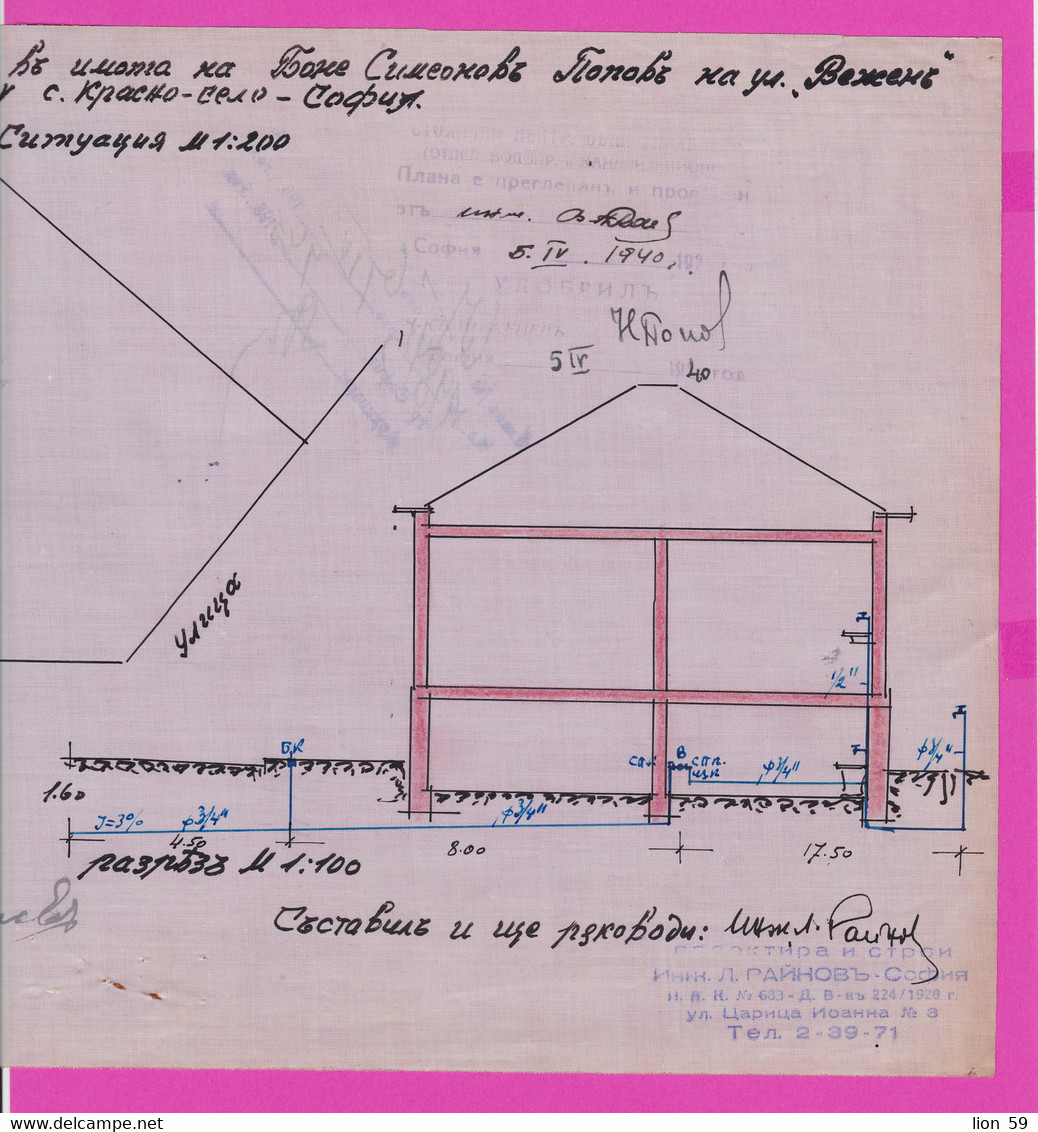 въ имота на Боне Симеоновъ Поповъ на ул. „Веженъ“
с. Красно-село - София.
Ситуация М 1:200
(ОТДЕЛ. ВОДОПР. и КАНАЛИЗАЦИОНЕ
Плана е прегледанъ и
отъ инж.
София 5. IV. 1940 г.
УДОБРИЛЪ
НПопов
5 IV 40
год
улица
1/2"
Б.К
В
ф 3/4"
ф 3/4"
1.60
J=3%
ф 3/4"
ф 3/4"
4.50
8.00
17.50
разрѣзъ М 1:100
Съставилъ и ще рѫководи: Инж Л. Райнов
проектира и строи
Инж. Л. РАЙНОВЪ - София
Н. А. К. № 633 - Д. В-къ 224/1920 г.
ул. Царица Иоанна № 3
Тел. 2-39-71
lion 59